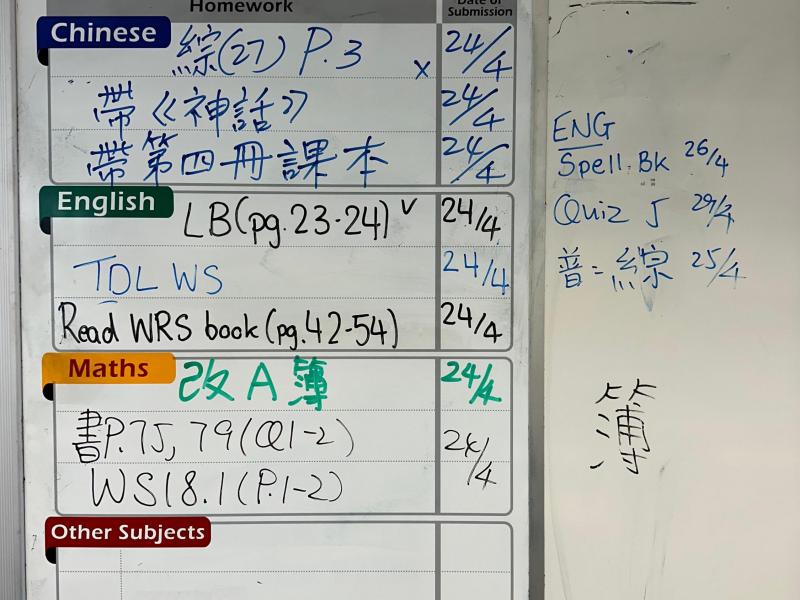 Homework Date of Submission
Chinese
綜(27) P.3 x 24/4
帶《神話》 24/4
帶第四冊課本 24/4
English
LB(pg.23-24) ✓ 24/4
TDL WS 24/4
Read WRS book(pg.42-54) 24/4
Maths
改A簿 24/4
書P.75, 79(Q1-2) 24/4
WS18.1(P.1-2)
Other Subjects
ENG
Spell. Bk 26/4
Quiz 5 29/4
普= 綜 25/4
簿